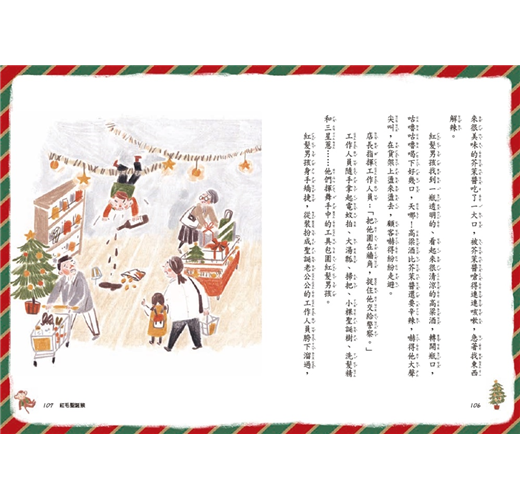 來很美味的芥茉醬吃了一大口，被芥茉醬嗆得連連咳嗽，急著找東西
解辣。
紅髮男孩找到一瓶透明的、看起來很清涼的高粱酒，轉開瓶口，
咕嚕咕嚕喝下好幾口，天哪！高粱酒比芥茉醬還要辛辣，嚇得他大聲
尖叫，在貨架上盪來盪去，顧客嚇得紛紛走避。
店長指揮工作人員：「把他圍到牆角，捉住他交給警察。」
工作人員隨手拿起電蚊拍、大湯瓢、掃把、小裸聖誕樹、洗髮精
和三星蔥……他們揮舞手中的工具包圍紅髮男孩。
紅髮男孩身手矯捷，從裝扮成聖誕老公公的工作人員胯下溜過，
106
107 紅毛聖誕猴